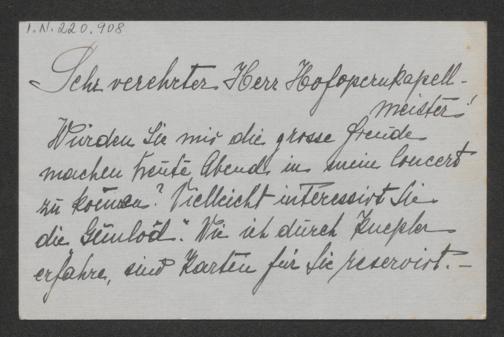 I.N. 220.908
Sehr verehrter Herr Hofopernkapell-
meister!
Würden Sie mir die grosse Freude
machen heute Abend in mein Concert
zu kommen? Vielleicht interessirt Sie
die „Gunlöd“. Wie ich durch Knepler
erfahre, sind Karten für Sie reservirt. –